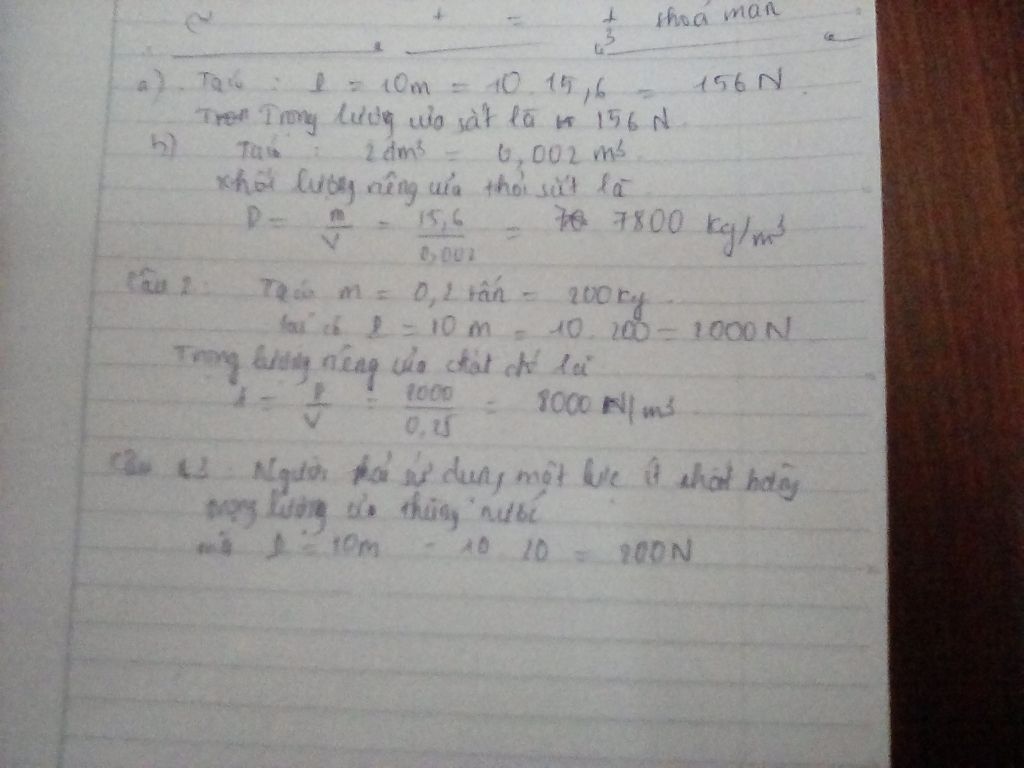 + = 1/3 thoả mãn
a) Ta có : P = 10m = 10.15,6 = 156 N.
Trọng lượng của sắt là 156 N.
b) Ta có : 2dm³ = 0,002 m³.
Khối lượng riêng của thỏi sắt là
D = m/V = 15,6/0,002 = 7800 kg/m³
Câu 2: Ta có m = 0,2 tấn = 200kg.
P = 10 m = 10.200 = 2000N
Trọng lượng riêng của chất đó là
d = P/V = 2000/0,25 = 8000 N/m³
Câu 3: Người phải sử dụng một lực ít nhất bằng
trọng lượng của thùng nước
P = 10m = 10 20 = 200N